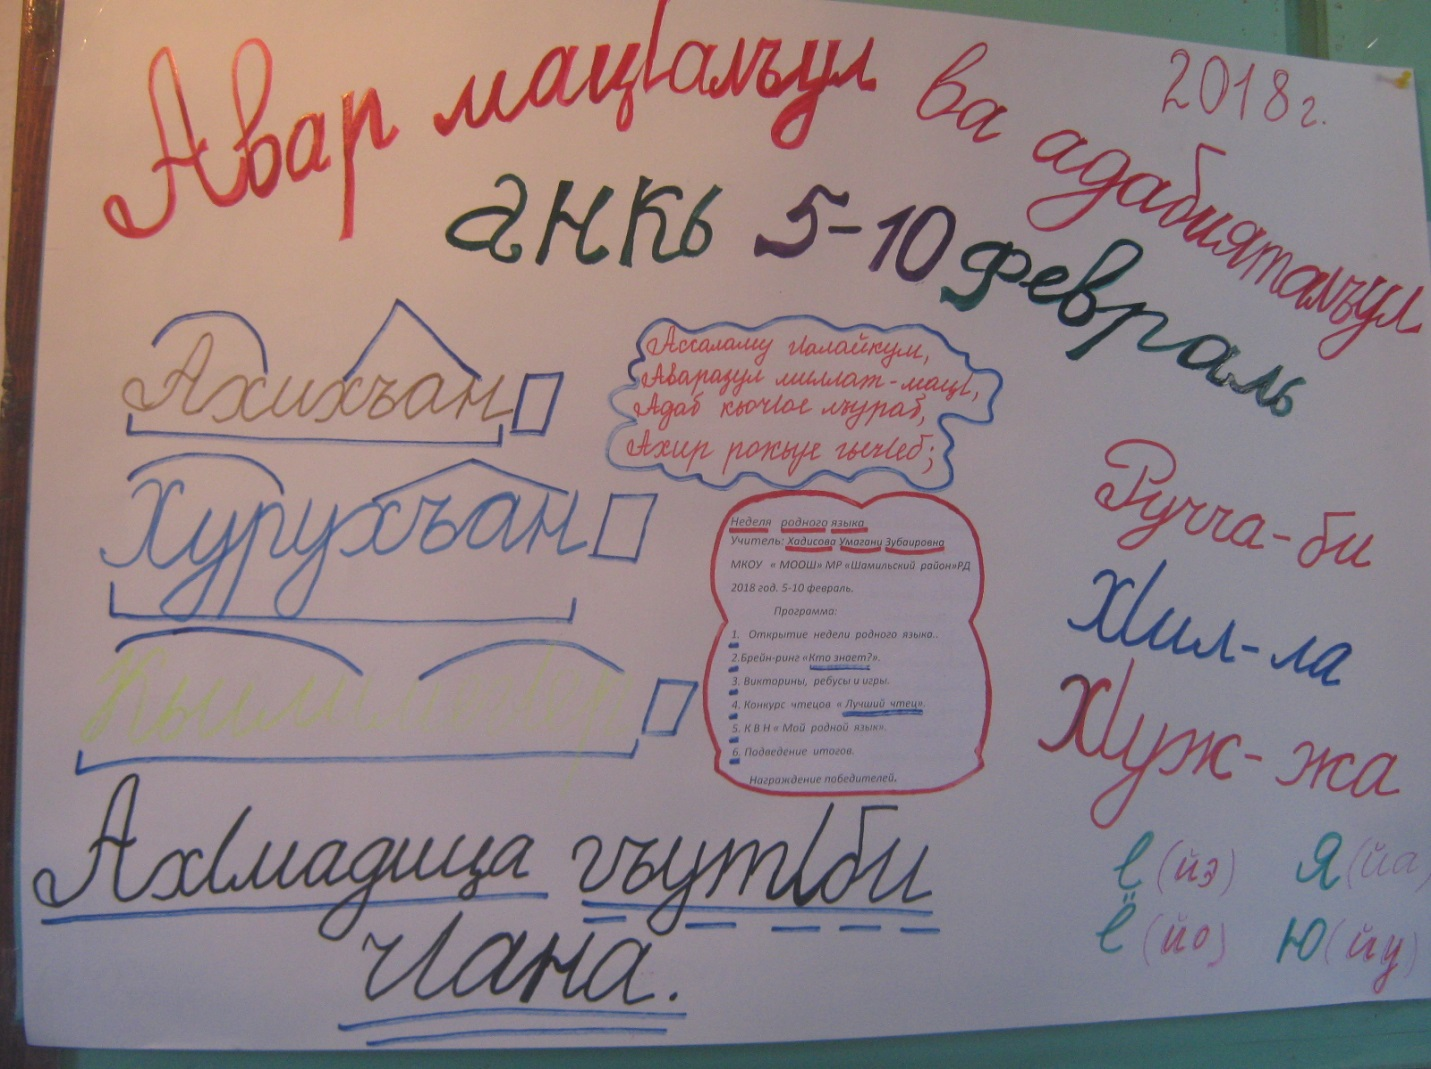 Авар мацӀалъул ва адабияталъул
2018г.
анкь 5-10 февраль
Ахихъан
Хурухъан
Ассаламу гӀалайкум,
Аваразул миллат-мацӀ,
Адаб кьочӀое лъураб,
Ахир рокъуе гьечӀеб;
Неделя родного языка
Учитель: Хадисова Умагани Зубаировна
МКОУ « МООШ» МР «Шамильский район»РД
2018 год. 5-10 февраль.
Программа:
1. Открытие недели родного языка..
2.Брейн-ринг «Кто знает?».
3. Викторины, ребусы и игры.
4. Конкурс чтецов « Лучший чтец».
5. К В Н « Мой родной язык».
6. Подведение итогов.
Награждение победителей.
Ручча-би
ХӀил-ла
ХӀуж-жа
е (йэ) Я (йа
ё (йо) Ю (йу)
АхӀмадица гъутӀби
чӀана.